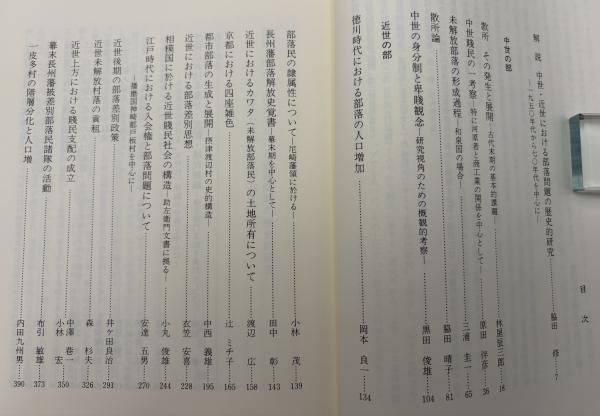 目次
解説 中世・近世における部落問題の歴史的研究
―一九五〇年代から七〇年代を中心に― 脇田 修 7
中世の部
散所 その発生と展開―古代末期の基本的課題― 林屋辰三郎 18
中世賤民の一考察―特に河原者と商工業の関係を中心として― 原田 伴彦 36
未解放部落の形成過程―和泉国の場合― 三浦 圭一 65
散所論 脇田 晴子 81
中世の身分制と卑賤観念―研究視角のための概観的考察― 黒田 俊雄 104
近世の部
徳川時代における部落の人口増加 岡本 良一 134
部落民の隷属性について―尼崎藩領に於ける― 小林 茂 139
長州藩部落解放史覚書―幕末期を中心として― 田中 彰 143
近世におけるカワタ(未解放部落民)の土地所有について 渡辺 広 158
京都における四座雑色 辻 ミチ子 165
都市部落の生成と展開―摂津渡辺村の史的構造― 中西 義雄 195
近世における部落差別思想 衣笠 安喜 228
相模国に於ける近世賤民社会の構造―助左衛門文書に拠る― 小丸 俊雄 244
江戸時代における入会権と部落問題について
―播磨国神崎郡戸板村を中心に― 安達 五男 270
近世後期の部落差別政策 井ケ田良治 291
近世未解放村落の貢租 森 杉夫 326
近世上方における賤民支配の成立 中澤 巷一
小林 宏 350
幕末長州藩被差別部落民諸隊の活動 布引 敏雄 373
一皮多村の階層分化と人口増 内田九州男 390